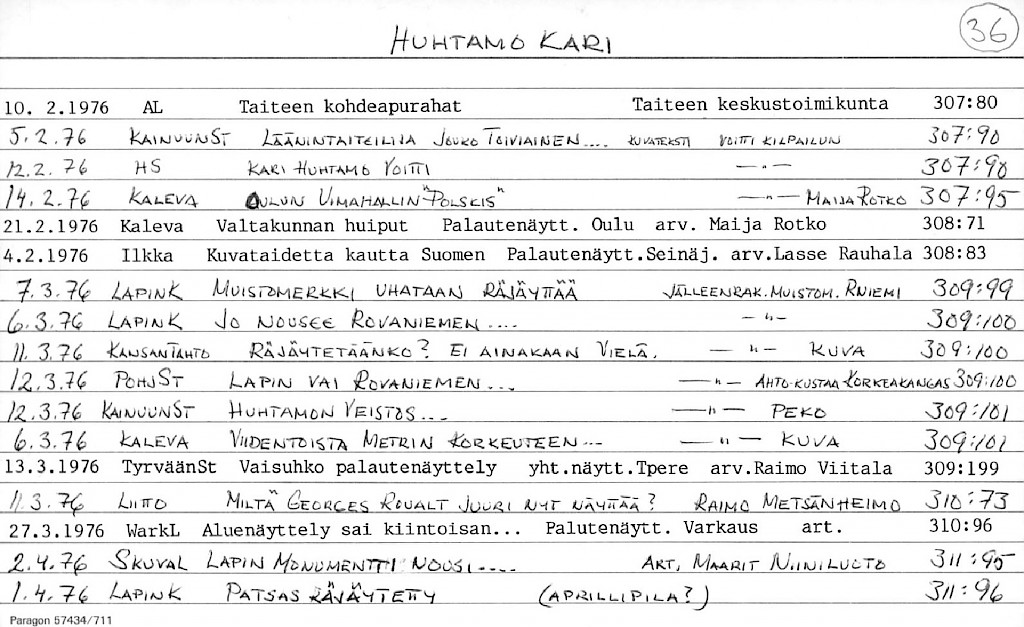 HUHTAMO KARI 36
10. 2.1976 AL Taiteen kohdeapurahat Taiteen keskustoimikunta 307:80
5.2.76 KAINUUNST LÄÄNINTAITEILIJA JOUKO TOIVIAINEN.... KUVATEKSTI VOITTI KILPAILUN 307:90
12.2.76 HS KARI HUHTAMO VOITTI —"— 307:90
14.2.76 KALEVA OULUN UIMAHALLIN "POLSKIS" —"— MAIJA ROTKO 307:95
21.2.1976 Kaleva Valtakunnan huiput Palautenäytt. Oulu arv. Maija Rotko 308:71
4.2.1976 Ilkka Kuvataidetta kautta Suomen Palautenäytt.Seinäj. arv.Lasse Rauhala 308:83
7.3.76 LAPINK MUISTOMERKKI UHATAAN RÄJÄYTTÄÄ JÄLLEENRAK.MUISTOM. RNIEMI 309:99
6.3.76 LAPINK JO NOUSEE ROVANIEMEN.... —"— 309:100
11.3.76 KANSANTAHTO RÄJÄYTETÄÄNKÖ? EI AINAKAAN VIELÄ. —"— KUVA 309:100
12.3.76 POHJST LAPIN VAI ROVANIEMEN... —"— AHTO-KUSTAA KORKEAKANGAS 309:100
12.3.76 KAINUUNST HUHTAMON VEISTOS... —"— PEKO 309:101
6.3.76 KALEVA VIIDENTOISTA METRIN KORKEUTEEN... —"— KUVA 309:101
13.3.1976 TyrväänSt Vaisuhko palautenäyttely yht.näytt.Tpere arv.Raimo Viitala 309:199
11.3.76 LIITTO MILTÄ GEORGES ROUALT JUURI NYT NÄYTTÄÄ? RAIMO METSÄNHEIMO 310:73
27.3.1976 WarkL Aluenäyttely sai kiintoisan... Palutenäytt. Varkaus art. 310:96
2.4.76 SKUVAL LAPIN MONUMENTTI NOUSI.... ART, MAARIT NIINILUOTO 311:95
1.4.76 LAPINK PATSAS RÄJÄYTETTY (APRILLIPILA?) 311:96
Paragon 57434/711